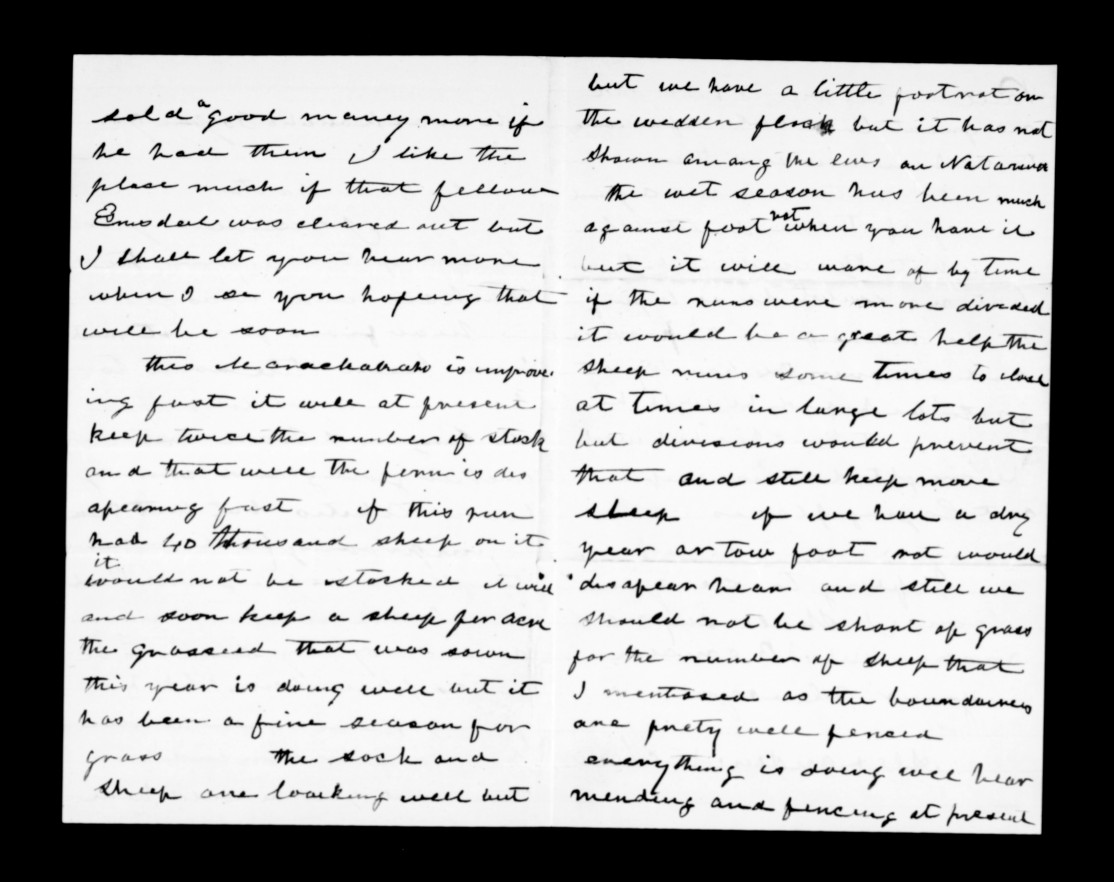 sold a good maney more if
he had them I like the
plase much if that fellow
Emsdal was cleared out but
I shall let you hear more
when I se you hopeing that
will be soon
this Marackakaho is improve
ing fast it will at present
keep twice the number of stock
and that well the fern is dis
apearing fast if this run
had 40 thousand sheep on it
it would not be stocked it will
and soon keep a sheep per acre
the grasseed that was sown
this year is doing well but it
has been a fine season for
grass the sock and
sheep are looking well but
but we have a little footrot on
the wedden flock but it has not
shown among the ews on
the wet season has been much
against foot rot when you have it
but it will ware of by time
if the runs were more divided
it would be a great help the
sheep runs some times to close
at times in large lots but
but divisions would prevent
that and still keep more
sheep if we have a dry
year or tow foot rot would
disapear hear and still we
should not be short of grass
for the number of sheep that
I mentioned as the boundaireys
are prety well fenced
everything is doing well hear
mending and fencing at present